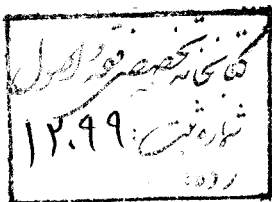 کتابخانه تخصصی فقه و اصول
شماره ثبت: ۱۲۰۹۹
رده: